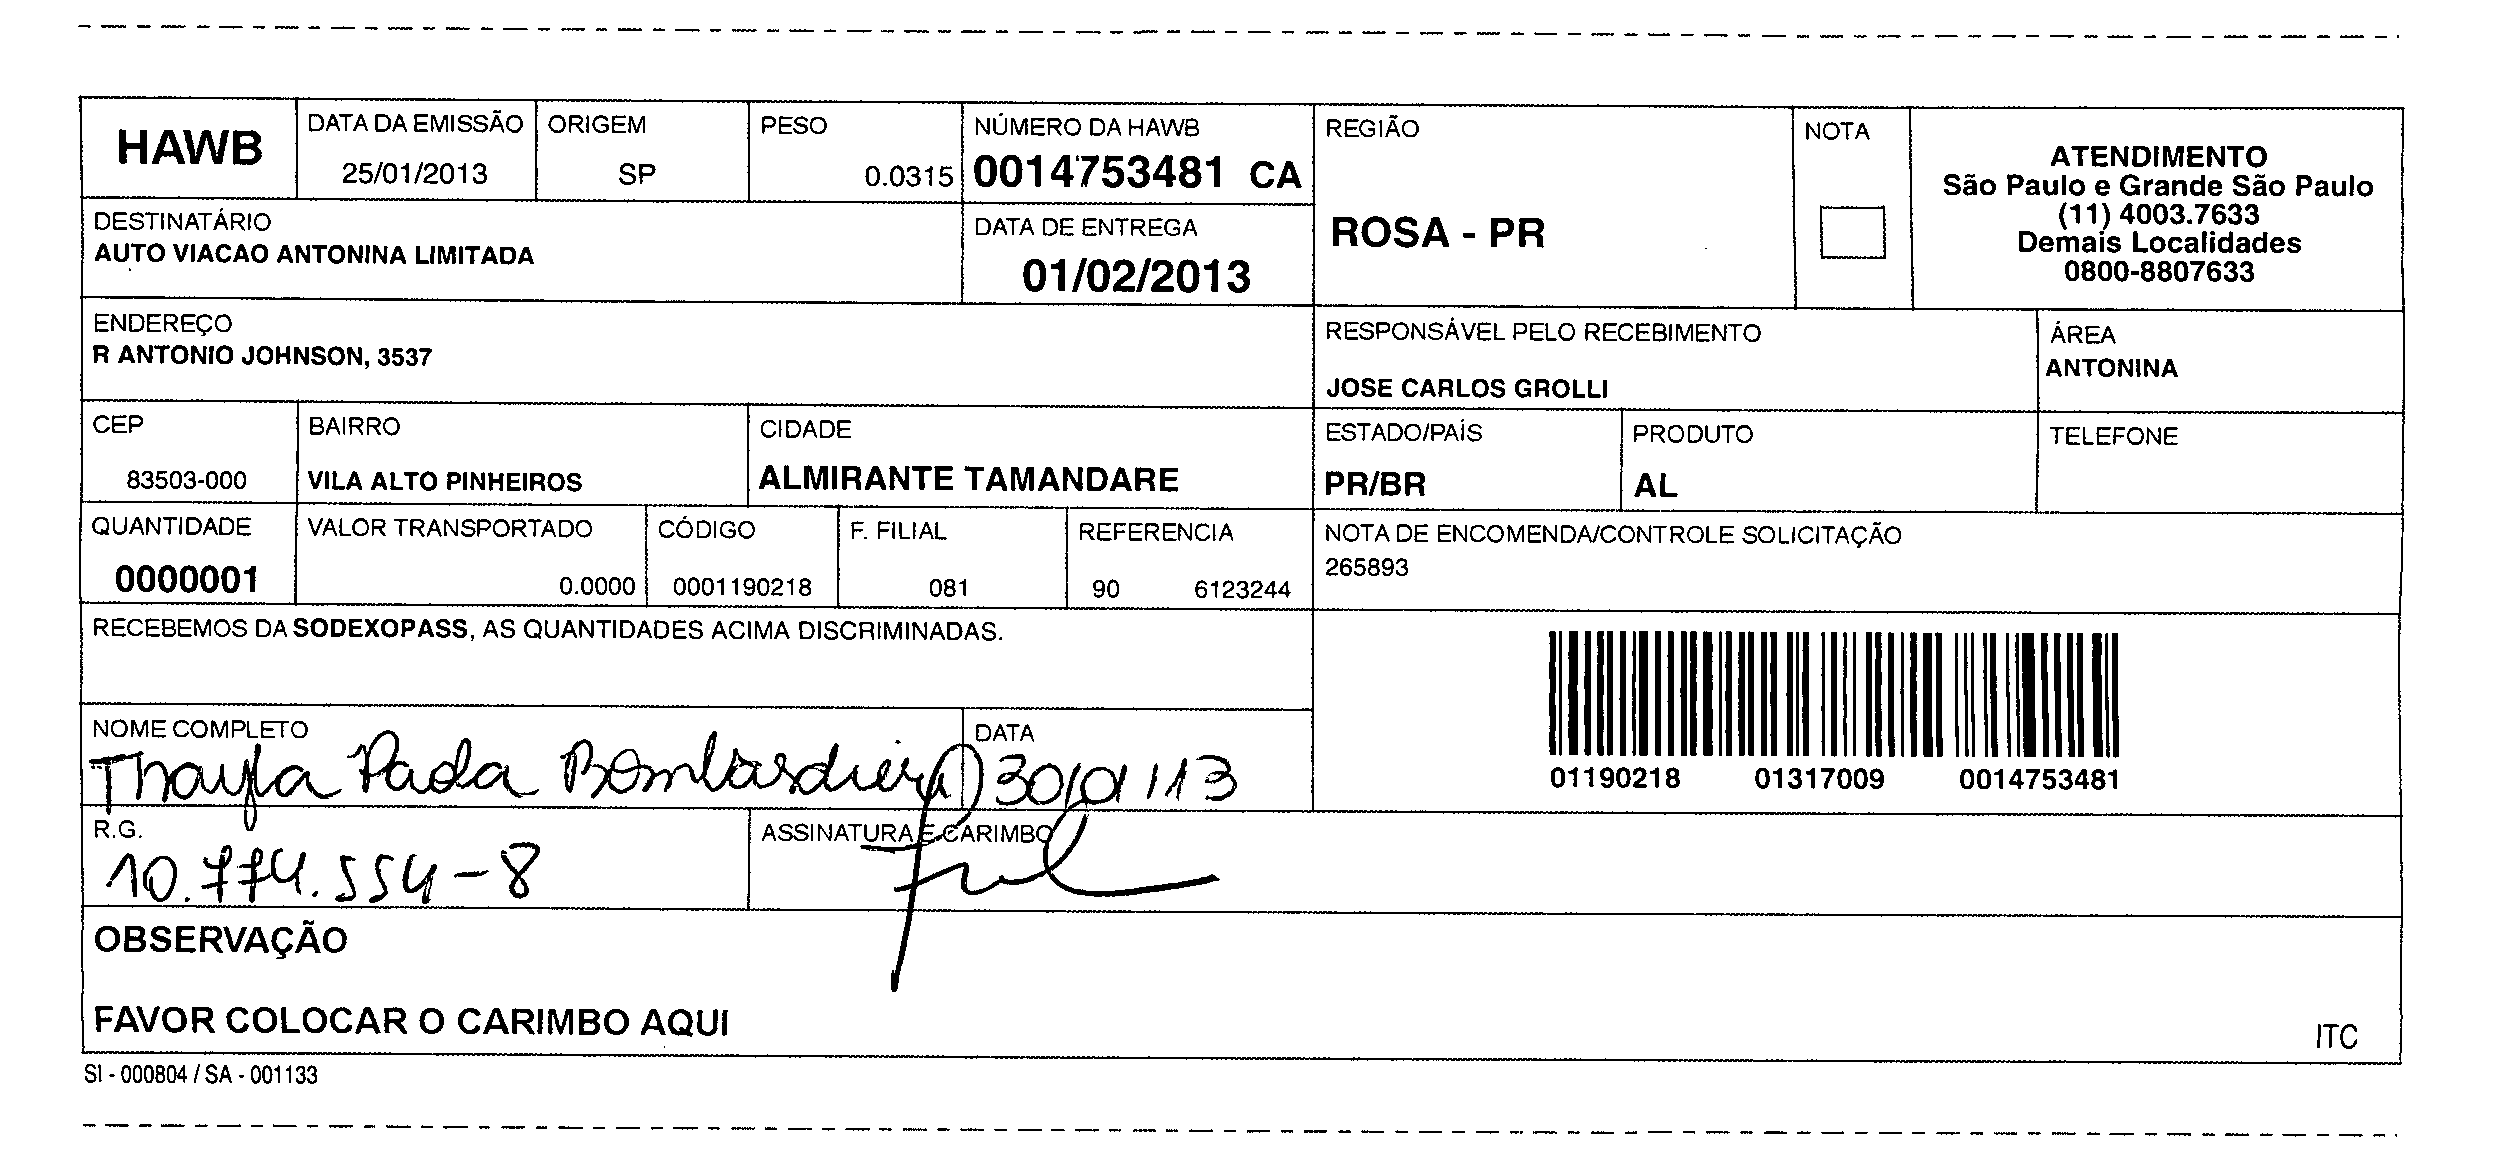 HAWB
DATA DA EMISSÃO
25/01/2013
ORIGEM
SP
PESO
0.0315
NÚMERO DA HAWB
0014753481 CA
REGIÃO
ROSA - PR
NOTA
ATENDIMENTO
São Paulo e Grande São Paulo
(11) 4003.7633
Demais Localidades
0800-8807633
DESTINATÁRIO
AUTO VIACAO ANTONINA LIMITADA
DATA DE ENTREGA
01/02/2013
ENDEREÇO
R ANTONIO JOHNSON, 3537
RESPONSÁVEL PELO RECEBIMENTO
JOSE CARLOS GROLLI
ÁREA
ANTONINA
CEP
83503-000
BAIRRO
VILA ALTO PINHEIROS
CIDADE
ALMIRANTE TAMANDARE
ESTADO/PAÍS
PR/BR
PRODUTO
AL
TELEFONE
QUANTIDADE
0000001
VALOR TRANSPORTADO
0.0000
CÓDIGO
0001190218
F. FILIAL
081
REFERENCIA
90 6123244
NOTA DE ENCOMENDA/CONTROLE SOLICITAÇÃO
265893
RECEBEMOS DA SODEXOPASS, AS QUANTIDADES ACIMA DISCRIMINADAS.
01190218 01317009 0014753481
NOME COMPLETO
Thayla Paola
DATA
30/01/13
R.G.
10.774.554-8
ASSINATURA E CARIMBO
OBSERVAÇÃO
FAVOR COLOCAR O CARIMBO AQUI
ITC
SI - 000804 / SA - 001133